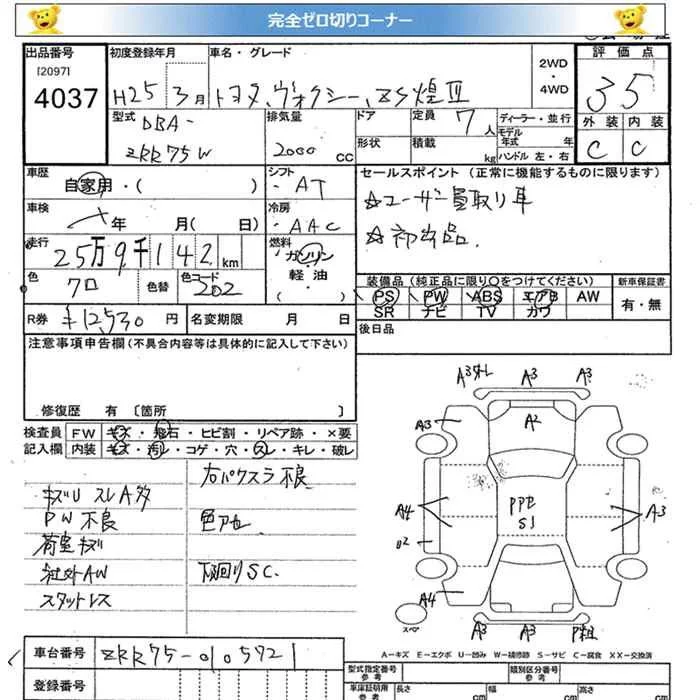 完全ゼロ切りコーナー
出品番号 初度登録年月 車名・グレード 2WD・4WD 評価点
[2097]
4037 H25 3月 トヨタ ヴォクシー ZS煌Ⅲ 3.5
型式 DBA- 排気量 ドア 定員 7人 ディーラー・並行 外装 内装
ZRR75W 2000cc 形状 積載 kg モデル年式 年 ハンドル 左・右 C C
車歴 自家用・( ) シフト ・AT セールスポイント (正常に機能するものに限ります)
車検 年 月( 日) 冷房 ・AAC ☆ユーザー買取り車
走行 25万9千142km 燃料 ガソリン 軽油 ☆初出品.
色 クロ 色替 色コード 202 ( )
装備品 (純正品に限り○をつけてください) 新車保証書
PS PW ABS エアB AW 有・無
SR ナビ TV カワ
R券 ¥12,530円 名変期限 月 日 後日品
注意事項申告欄(不具合内容等は具体的に記入して下さい)
修復歴 有 〔箇所 〕
検査員 FW キズ・飛石・ヒビ割・リペア跡・×要
記入欄 内装 キズ・汚レ・コゲ・穴・スレ・キレ・破レ
キズU スレA多
PW不良
荷室キズ
社外AW
スタットレス
右パワスラ不良
色アセ
下回りSC.
A3 A3
A3 A2
A4 PPE S1 A3
U2
A4
スペア A3 A3
A-キズ E-エクボ U-凹み W-補修跡 S-サビ C-腐食 XX-交換済
車台番号 ZRR75-0105721
登録番号
型式指定番号 参考 類別区分番号 参考
車庫証明用 参考 長さ cm 幅 cm 高さ cm